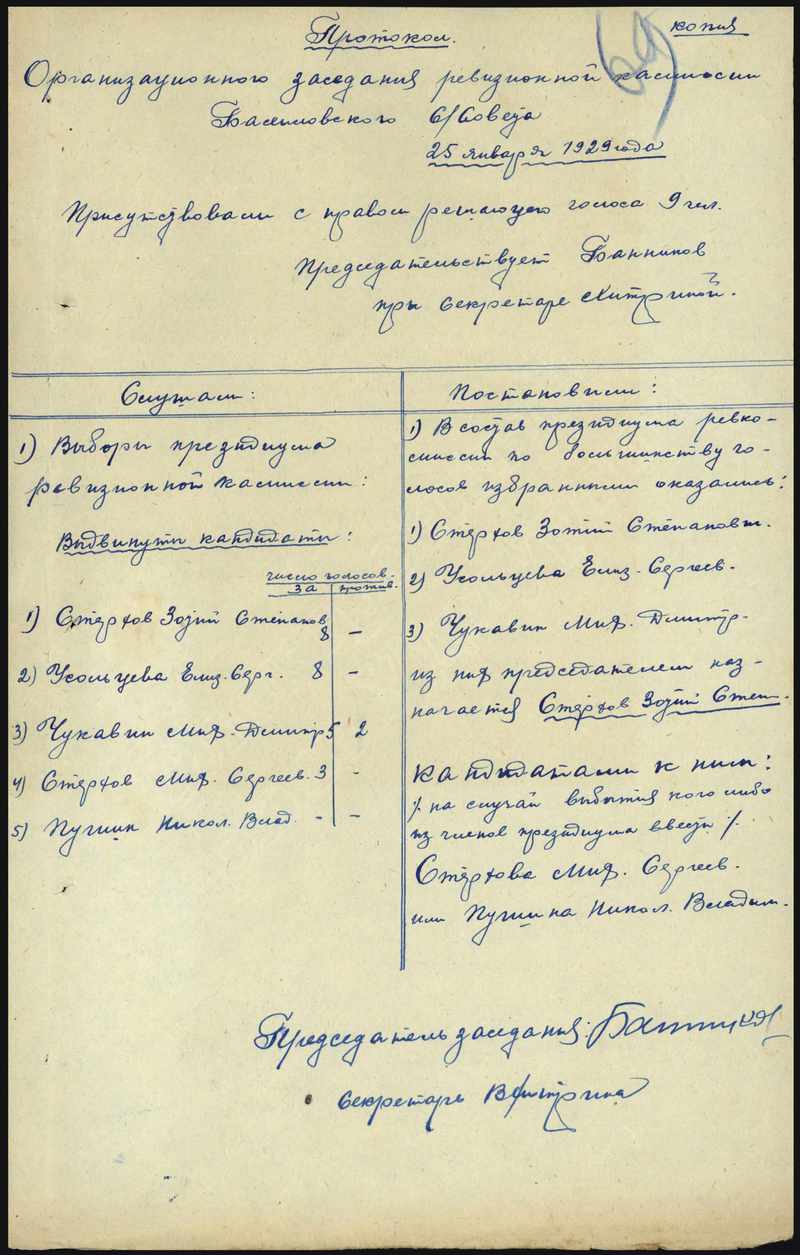 копия
69
Протокол.
Организационного заседания ревизионной комиссии
с/совета
25 января 1929 года
Присутствовали с правом решающего голоса 9 чел.
Председательствует Банников
при секретаре Хитриной.
Слушали:
1) Выборы президиума
ревизионной комиссии:
Выдвинуты кандидаты:
число голосов.
за против.
1) Стерхов Зотий Степанов
8 –
2) Усольцева Елиз. Серг. 8 –
3) Чукавин Миф. Дмитр 5 2
4) Стерхов Миф. Сергеев. 3 -
5) Пугин Никол. Влад. - –
Постановили:
1) В состав президиума ревко-
миссии по большинству го-
лосов избранными оказались:
1) Стерхов Зотий Степанович.
2) Усольцева Елиз. Сергеев.
3) Чукавин Миф. Дмитр-
из них председателем наз-
начается Стерхов Зотий Степ.
Кандидатами к ним:
/. на случай выбытия кого либо
из членов президиума ввести /.
Стерхова Миф. Сергеев.
или Пугина Никол. Владим.
Председатель заседания:
Секретарь ВХитрина